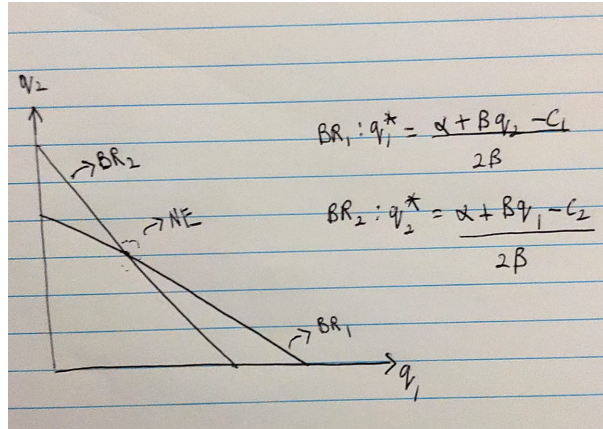 q₂
BR₂
NE
BR₁
q₁
BR₁ : q₁* = α + βq₂ - C₁
2β
BR₂ : q₂* = α + βq₁ - C₂
2β